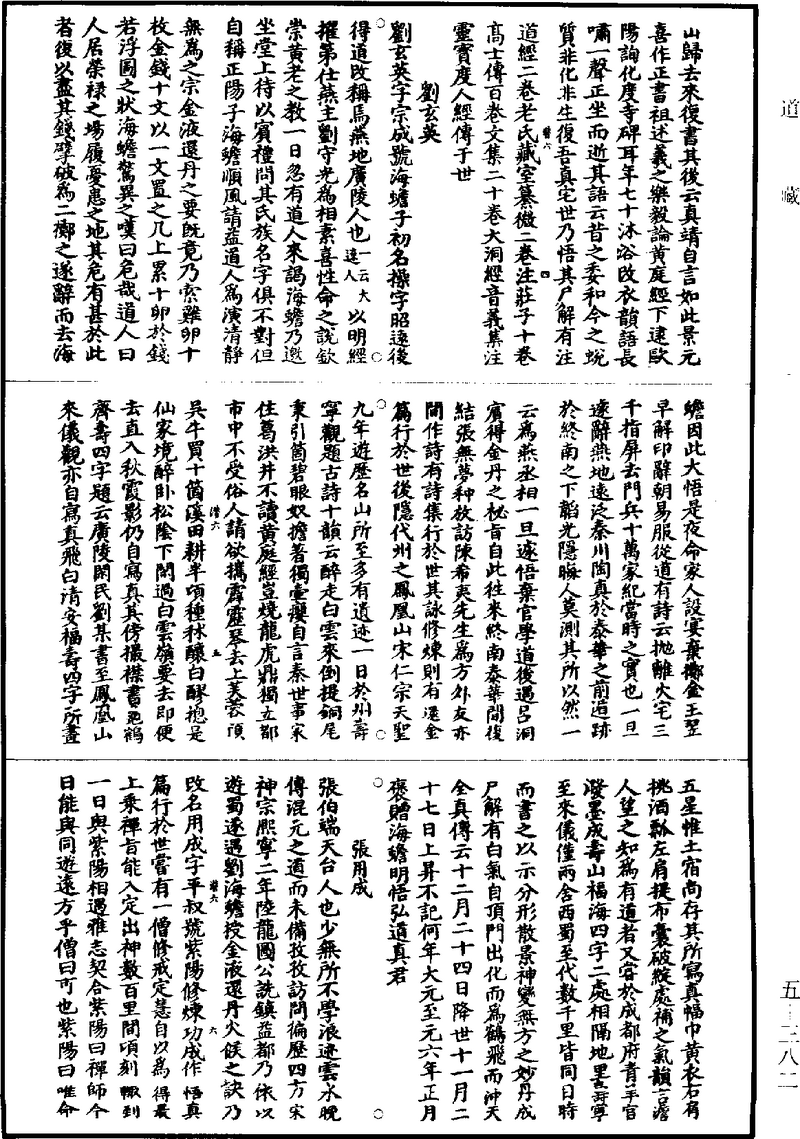 道藏
山歸去來復書其後云真靖自言如此景元
喜作正書祖述羲之樂毅論黃庭經下逮歐
陽詢化度寺碑耳年七十沐浴改衣韻語長
嘯一聲正坐而逝其語云昔之委和今之蛻
質非化非生復吾真宅世乃悟其尸解有注
道經二卷老氏藏室纂微二卷注莊子十卷
高士傳百卷文集二十卷大洞經音義集注
靈寶度人經傳于世
劉玄英
劉玄英字宗成號海蟾子初名操字昭遠後
得道改稱焉燕地廣陵人也一云大遼人以明經
擢第仕燕主劉守光為相素喜性命之說欽
崇黃老之教一日忽有道人來謁海蟾乃邀
坐堂上待以賓禮問其氏族名字俱不對但
自稱正陽子海蟾順風請益道人為演清靜
無為之宗金液還丹之要既竟乃索雞卵十
枚金錢十文以一文置之几上累十卵於錢
若浮圖之狀海蟾驚異之嘆曰危哉道人曰
人居榮祿之場履憂患之地其危有甚於此
者復以盡其錢擘破為二擲之遂辭而去海
蟾因此大悟是夜命家人設宴棄擲金玉翌
早解印辭朝易服從道有詩云拋離火宅三
千指屏去門兵十萬家紀當時之實也一旦
遠辭燕地遠泛秦川陶真於泰華之前遁跡
於終南之下韜光隱晦人莫測其所以然一
云為燕丞相一旦遽悟棄官學道後遇呂洞
賓得金丹之秘旨自此往來終南泰華間復
結張無夢种放訪陳希夷先生為方外友亦
間作詩有詩集行於世其詠修煉則有還金
篇行於世後隱代州之鳳凰山宋仁宗天聖
九年遊歷名山所至多有遺迹一日於州壽
寧觀題古詩十韻云醉走白雲來倒提銅尾
秉引箇碧眼奴擔著獨壺癭自言秦世事家
住葛洪井不讀黃庭經豈燒龍虎鼎獨立都
市中不受俗人請欲攜霹靂琴去上芙蓉頂
吳牛買十箇溪田耕半頃種秫釀白醪總是
仙家境醉臥松陰下閑過白雲嶺要去即便
去直入秋霞影仍自寫真其傍撮襟書龜鶴
齊壽四字題云廣陵閑民劉某書至鳳凰山
來儀觀亦自寫真飛白清安福壽四字所畫
五星惟土宿尚存其所寫真幅巾黃衣右肩
挑酒瓢左肩提布囊破綻處補之氣韻古澹
人望之知為有道者又嘗於成都府青羊宮
潑墨成壽山福海四字二處相隔地里壽寧
至來儀僅兩舍西蜀至代數千里皆同日時
而書之以示分形散景神變無方之妙丹成
尸解有白氣自頂門出化而為鶴飛而沖天
全真傳云十二月二十四日降世十一月二
十七日上昇不記何年大元至元六年正月
褒贈海蟾明悟弘道真君
張用成
張伯端天台人也少無所不學浪迹雲水晚
傳混元之道而未備孜孜訪問徧歷四方宋
神宗熙寧二年陸龍圖公詵鎮益都乃依以
遊蜀遂遇劉海蟾授金液還丹火候之訣乃
改名用成字平叔號紫陽修煉功成作悟真
篇行於世嘗有一僧修戒定慧自以為得最
上乘禪旨能入定出神數百里間頃刻輒到
一日與紫陽相遇雅志契合紫陽曰禪師今
日能與同遊遠方乎僧曰可也紫陽曰唯命
五—三八二